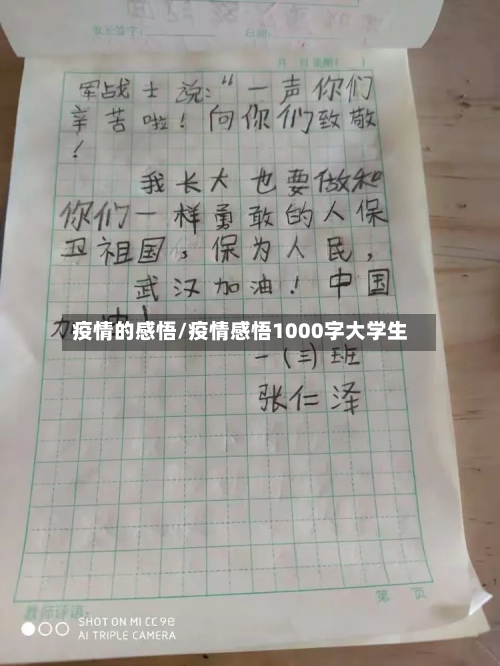 月 日 星期( )
军战士说:“一声你们
辛苦啦!向你们致敬
!
我长大也要做和
你们一样勇敢的人保
卫祖国,保为人民,
武汉加油!中国
加油!
疫情的感悟/疫情感悟1000字大学生
一(三)班
张仁泽
第 页
教师评语:
SHOT ON MI CC 9e
AI TRIPLE CAMERA